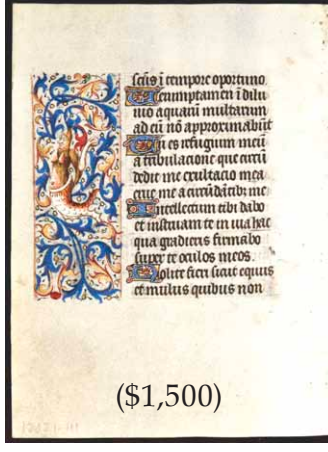 sctus ī tempore oportuno.
Verumptamen ī dilu
uio aquarū multarum
ad eū nō approximabūt
Tu es refugium meū
a tribulacione que circū
dedit me exultacio mea
erue me a circūdātibꝫ me
Intellectum tibi dabo
et instruam te in uia hac
qua gradieris firmabo
super te oculos meos.
Nolite fieri sicut equus
et mulus quibus non
($1,500)